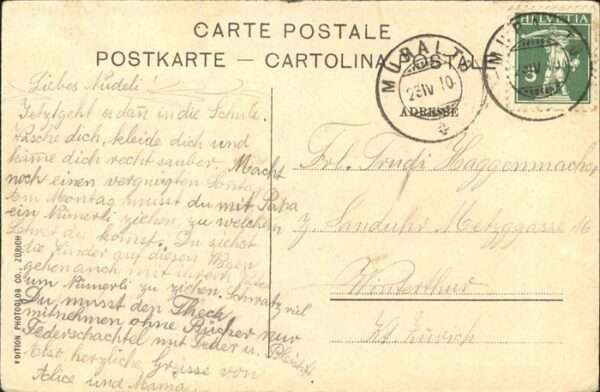 CARTE POSTALE
POSTKARTE — CARTOLINA POSTALE
HELVETIA
5
MURALTO
23 IV 10
ADRESSE
MURALTO
IV 10
Liebes Nudeli!
Jetzt geht es dann in die Schule.
Wasche dich, kleide dich und
kämme dich recht sauber. Macht
noch einen vergnügten Sonntag
Am Montag musst du mit Papa
ein Numerli ziehen, zu welchem
Lehrer du kommst. Du ziehst
die Kinder auf diesem Wagen
gehen auch mit ihrem
um Numerli zu ziehen. Schwatz viel
Du musst den Theck
mitnehmen ohne Bücher nur
Federschachtel mit Feder u. Bleistift
Also herzliche Grüsse von
Alice und Mama
Frl. Trudi Haggenmacher
z. Sanduhr Metzggasse 16
Winterthur
Kt. Zürich
EDITION PHOTOGLOB CO., ZÜRICH